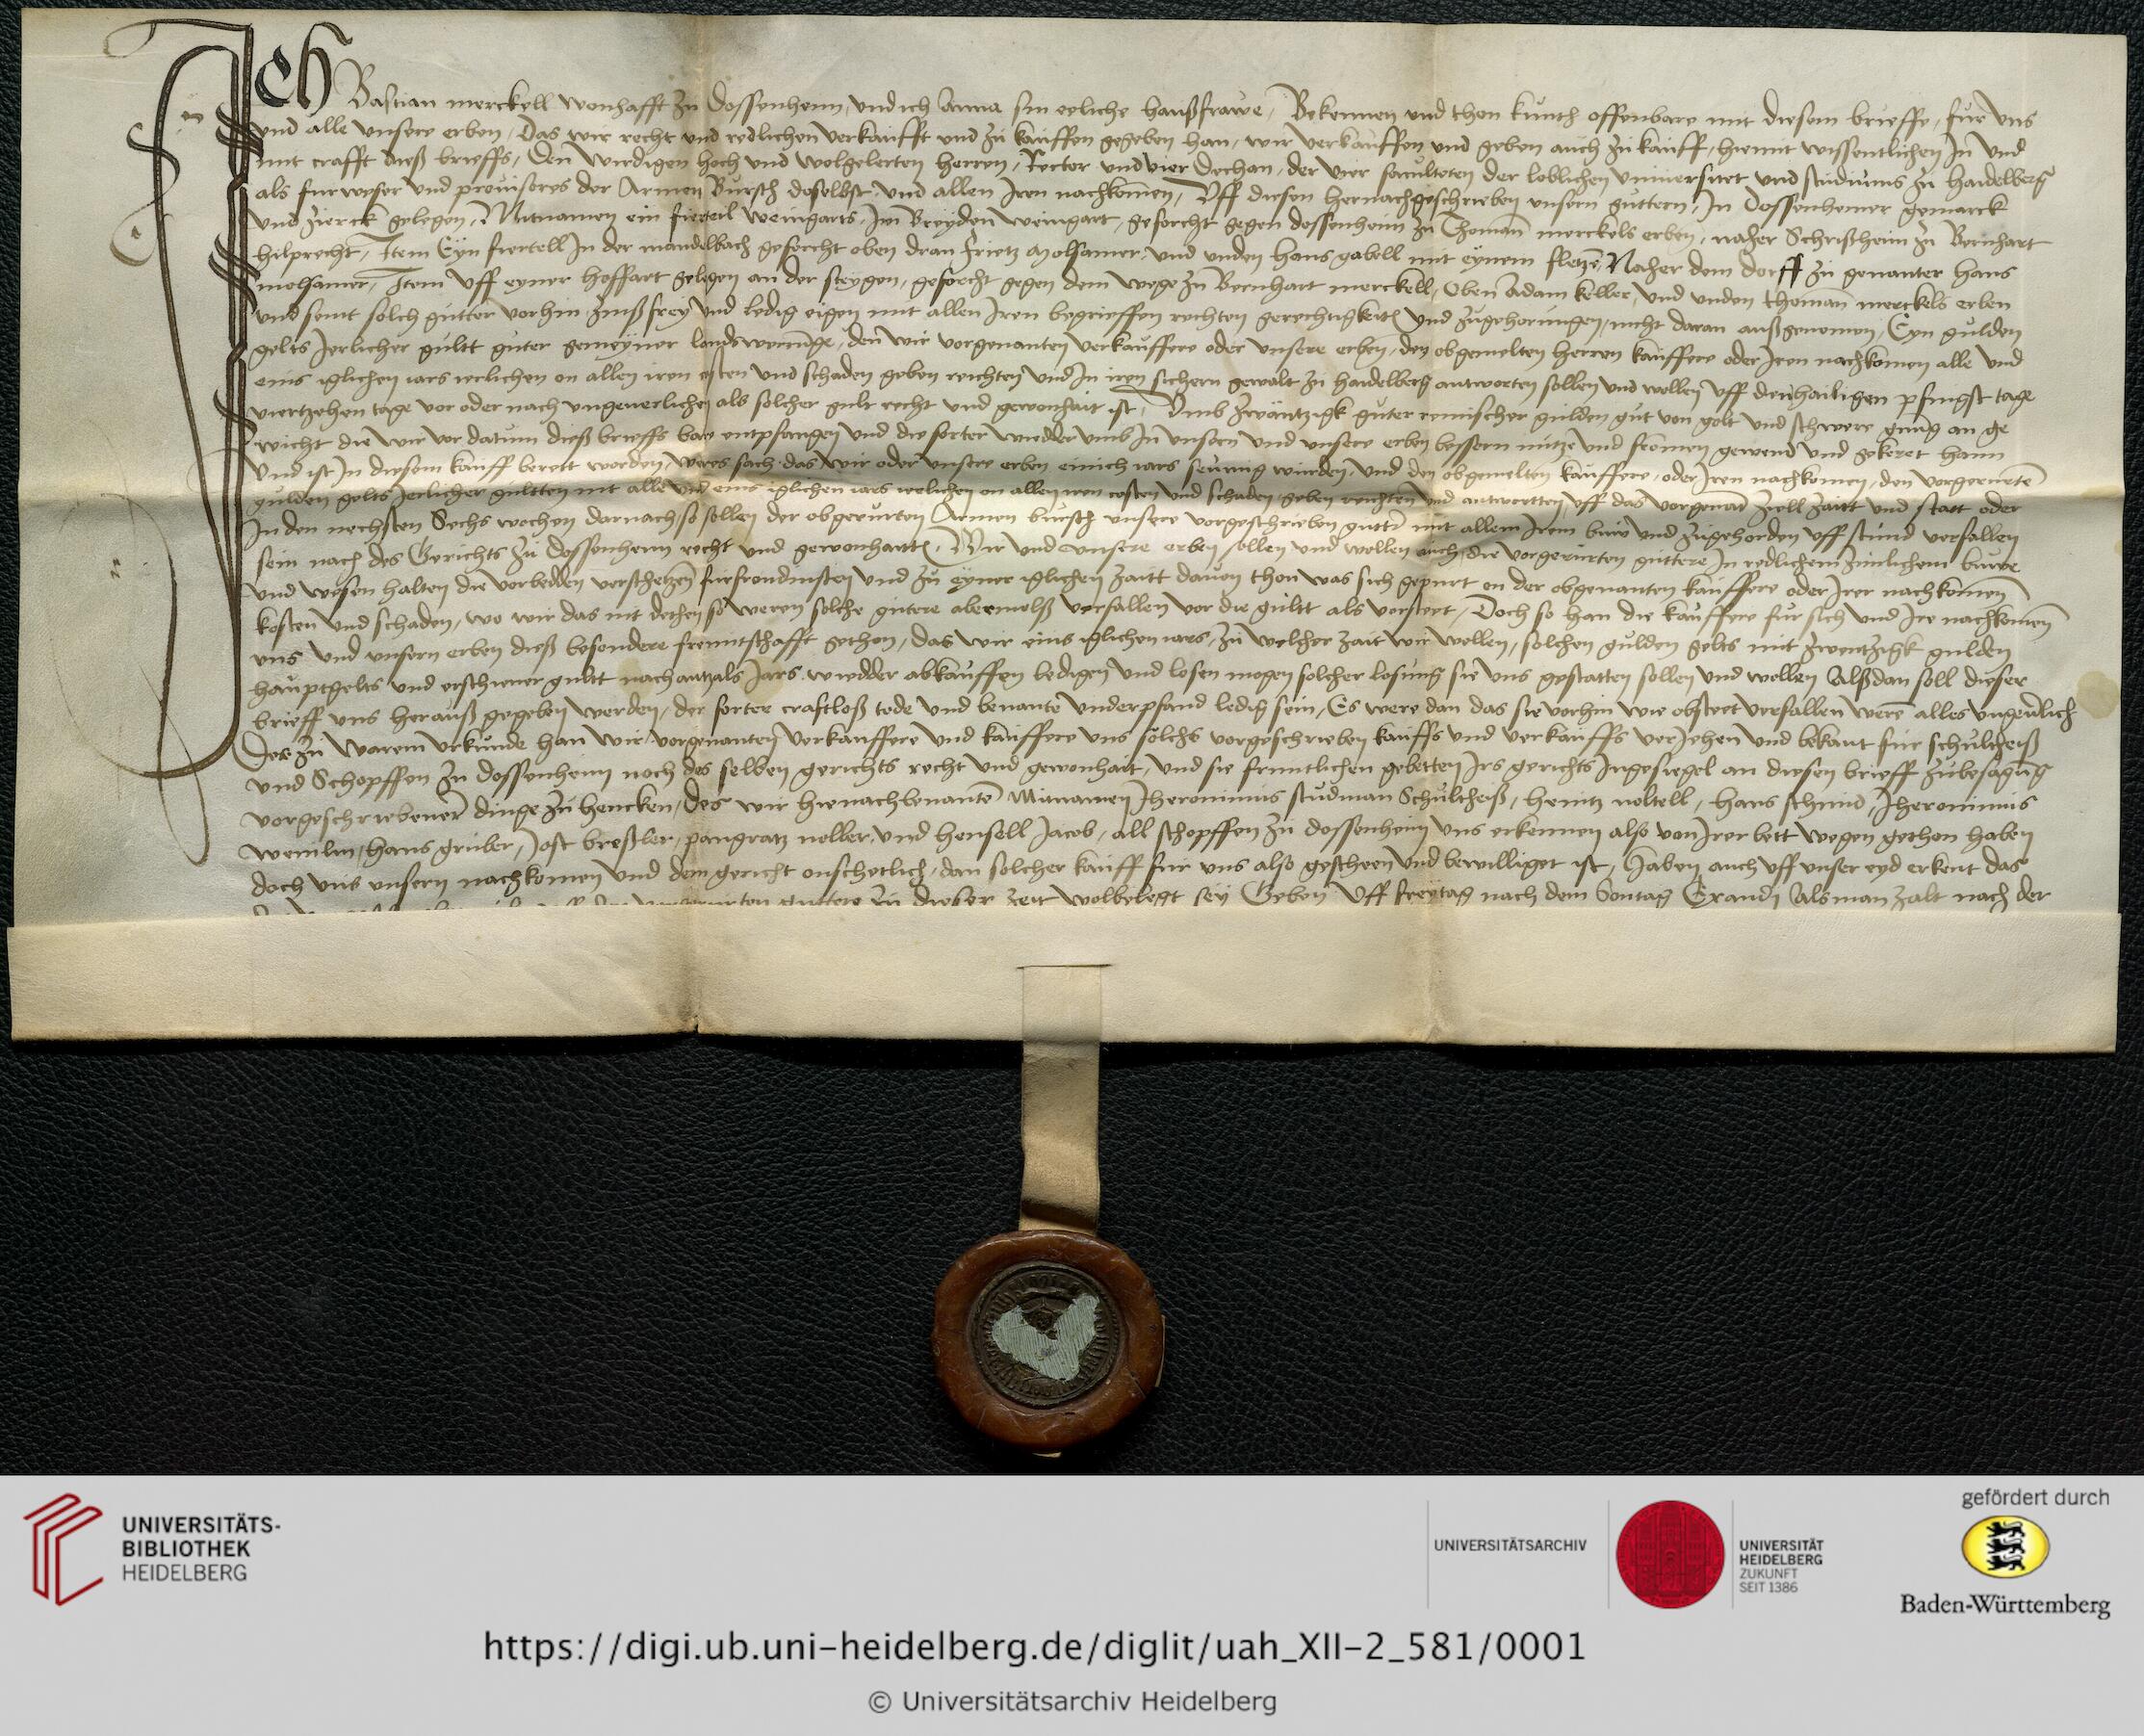 Ich Bastian merckell wonhafft zu Dossenheim, und ich Anna sin eeliche haußfrawe, Bekennen und thon kunth offenbare mit diesem brieffe, fur uns
und alle unsere erben, Das wir recht und redlichen verkaufft und zu kauffen gegeben han, wir verkauffen und geben auch zu kauff, hiemit wissentlichen In und
mit crafft dieß brieffs, Den wirdigen hoch und wolgelerten herren, Rector und vier Dechan, der vier faculteten der loblichen universitet und studiums zu haidelberg
als furweser und provisores der Armen Bursch doselbst und allen Iren nachkomen, Uff diesen hernachgeschrieben unsern guttern, In Dossenhemer gemarck
und zierck gelegen, Mitnamen ein fierteil weingarts, Im Breyden weingart, geforcht gegen dossenheim zu Thoman merckels erben, naher Schrißheim zu Bernhart
hilprecht, Item Eyn fiertell In der mandelbach geforcht oben dran frietz molsamer und unden hans gabell mit eynem fletze, Naher dem dorff zu genanter hans
molsamer, Item uff eyner hoffart gelegen an der steygen, geforcht gegen dem wege zu Bernhart merckell, Oben Adam keller, und unden thoman merckels erben
und seint solch gutter vorhin zinß frey und ledig eigen mit allen Iren begrieffen rechten gerechtigkeit und zugehorungen, nicht daran außgenomen, Eyn gulden
gelts Jerlicher gultt guter gemeyner landswerunge, den wir vorgenanten verkauffere oder unsere erben, den obgemelten herren kauffere oder Iren nachkomen alle und
eins iglichen iars ierlichen on allen iren costen und schaden geben reichten und In iren sichern gewalt zu haidelberg antworten sollen und wollen uff den hailigen pfingst tage
viertzehen tage vor oder nach ungeverlichen als solcher gult recht und gewonhait ist, Umb zwäntzigk guter reinischer gulden gut von golt und schwere gnug an ge
wicht die wir vor datum dieß brieffs bare entpfangen und die forter wiedder umb In unsern und unsere erben bessern nutze und fromen gewend und gekeret hann
Und ist In diesem kauff berett worden, weres sach das wir oder unsere erben einich iars seumig wurden, und den obgemelten kauffere, oder Iren nachkomen, den vorgerurte
gulden gelts Jerlicher gultten nit alle und eins iglichen iars ierlichen on allen iren costen und schaden geben reichten und antwortten uff das vorgenant ziell zaitt und statt oder
In den nechsten Sechs wochen darnach so sollen der obgerurten Armen bursch unsere vorgeschrieben gutter mit allem Irem buw und zugehorden uff stund verfallen
sein nach des Gerichts zu dossenheim recht und gewonhaitt, Wir und unsere erben sollen und wollen auch die vorgerurten guttere In redlichem zimlichem buwe
und wesen halten die verbedden verschetzen furfrondinsten und zu eyner iglichen zaitt davon thon was sich gepurt on der obgenanten kauffere oder Irer nachkomen
kosten und schaden, wo wir das nit dethen so weren solche gutere abermolß verfallen vor die gultt als vorsteet, Doch so han die kauffere fur sich und Ire nachkomen
uns und unsern erben dieß besondere freuntschafft gethon, das wir eins iglichen iars, zu welcher zait wir wollen, solchen gulden gelts mit zwentzigk gulden
hauptgelts und erschiener gultt nach antzals Jars wiedder abkauffen ledigen und losen mogen solcher losung sie uns gestatten sollen und wollen Alßdan soll dieser
brieff uns herauß gegeben werden, der forter craftloß tode und benante underpfand ledig sein, Es were dan das sie vorhin wie obsteet verfallen were alles ungeverlich
Des zu warem urkunde han wir vorgenanten verkauffere und kauffere uns solchs vorgeschrieben kauffs und verkauffs verJehen und bekant fur schultheiß
und Schopffen zu dossenheim noch des selben gerichts recht und gewonhait, und sie fruntlichen gebetten Irs gerichts Ingesiegel an diesen brieff zubesagung
vorgeschriebener dinge zu hencken, Des wir hienachbenante Mitnamen Jheronimus studman Schultheiß, heintz noltell, hans schmid, Jheronimus
wemlin, hans gruber, Jost breßler, pangratz neller, und hensell Jacob, all schopffen zu dossenheim uns erkennen also von Irer bett wegen gethon haben
doch uns unsern nachkomen und dem gericht onschetlich, dan solcher kauff fur uns also gescheen und bewilliget ist, Haben auch uff unser eyd erkent das
vorgerurten guttere zu dieser zeit wolbelegt sey Geben Uff freytag nach dem Sontag Exaudi Als man zalt nach der
UNIVERSITÄTS-
BIBLIOTHEK
HEIDELBERG
UNIVERSITÄTSARCHIV
UNIVERSITÄT
HEIDELBERG
ZUKUNFT
SEIT 1386
gefördert durch
Baden-Württemberg
https://digi.ub.uni-heidelberg.de/diglit/uah_XII-2_581/0001
© Universitätsarchiv Heidelberg